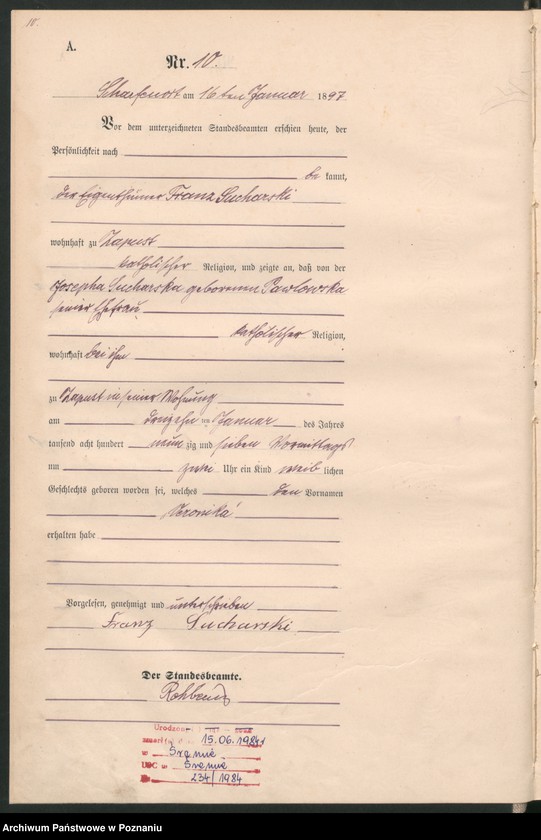 10.
A.
Nr. 10.
Scharfenort am 16ten Januar 1897
Vor dem unterzeichneten Standesbeamten erschien heute, der
Persönlichkeit nach
be kannt,
der Eigenthümer Franz Sucharski
wohnhaft zu Zapust
katholischer Religion, und zeigte an, daß von der
Josepha Sucharska geborenen Pawlowska
seiner Ehefrau
katholischer Religion,
wohnhaft bei ihm
zu Zapust in seiner Wohnung
am dreizehnten Januar des Jahres
tausend acht hundert neun zig und sieben Vormittags
um zwei Uhr ein Kind weib lichen
Geschlechts geboren worden sei, welches den Vornamen
Veronika
erhalten habe
Vorgelesen, genehmigt und unterschrieben
Franz Sucharski
Der Standesbeamte.
15.06.1984
w Śremie
USC w Śremie
234/1984
Archiwum Państwowe w Poznaniu